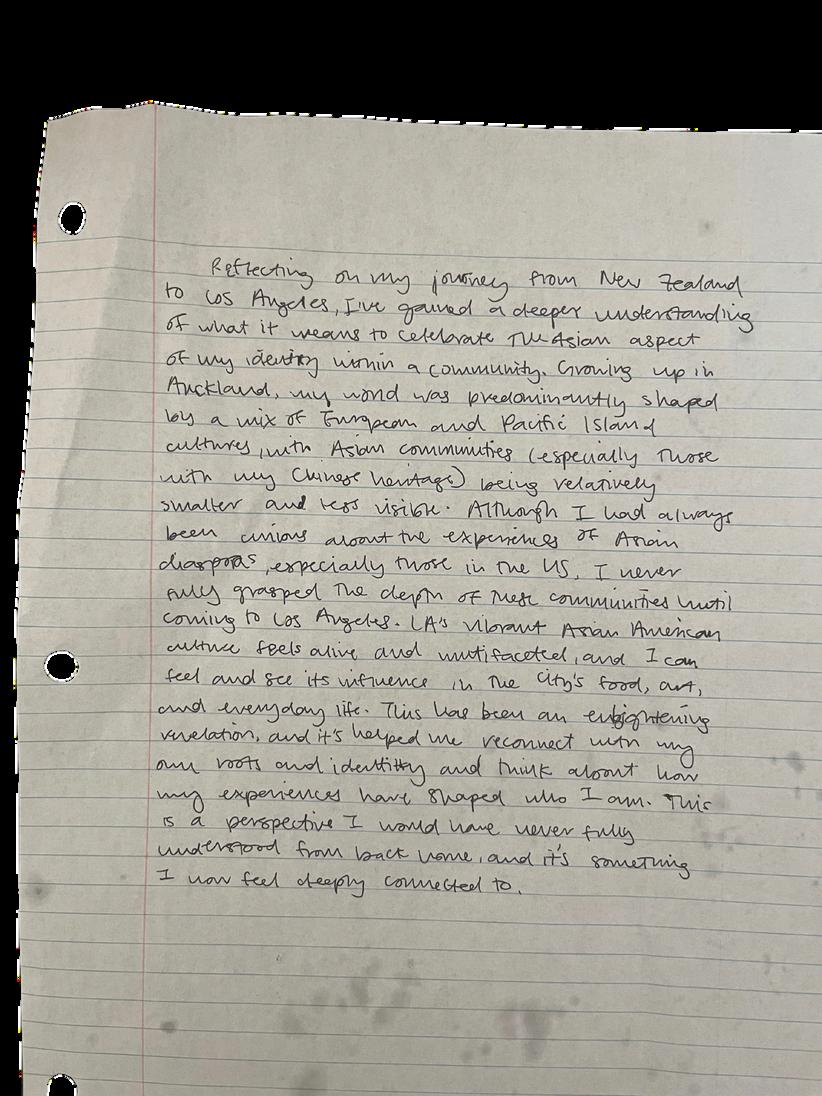 Reflecting on my journey from New Zealand
to Los Angeles, I've gained a deeper understanding
of what it means to celebrate the Asian aspect
of my identity within a community. Growing up in
Auckland, my world was predominantly shaped
by a mix of European and Pacific Island
cultures, with Asian communities (especially those
with my Chinese heritage) being relatively
smaller and less visible. Although I had always
been curious about the experiences of Asian
diasporas, especially those in the US, I never
fully grasped the depth of these communities until
coming to Los Angeles. LA's vibrant Asian American
culture feels alive and multifaceted, and I can
feel and see its influence in the city's food, art,
and everyday life. This has been an enlightening
revelation, and it's helped me reconnect with my
own roots and identity and think about how
my experiences have shaped who I am. This
is a perspective I would have never fully
understood from back home, and it's something
I now feel deeply connected to.